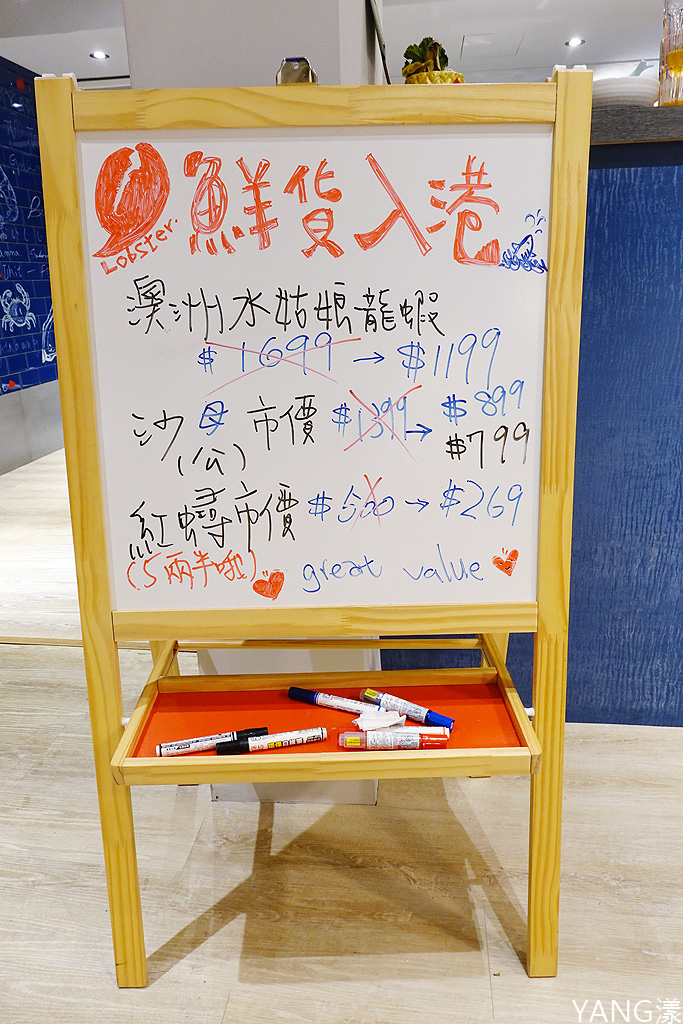 鮮貨入港
Lobster.
澳洲水姑娘龍蝦
$1699 → $1199
沙母市價 $1399 → $899
(公) $799
紅蟳市價 $500 → $269
(5兩半哦) great value
YANG漾